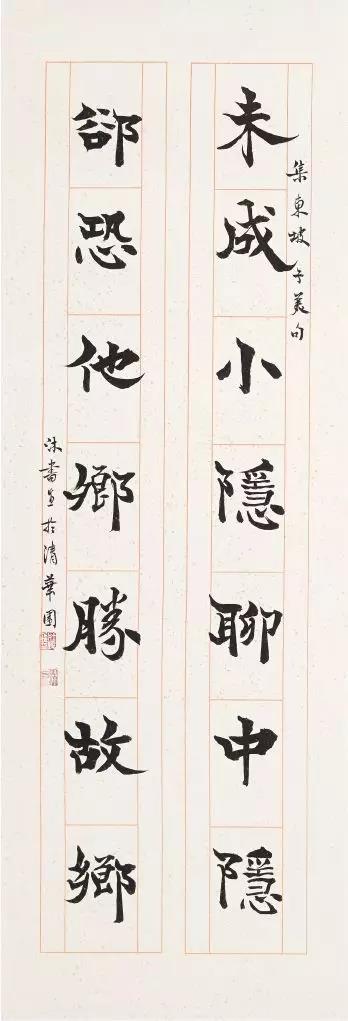 集東坡子美句
未成小隱聊中隱
郤恐他鄉勝故鄉
沐書於清華園